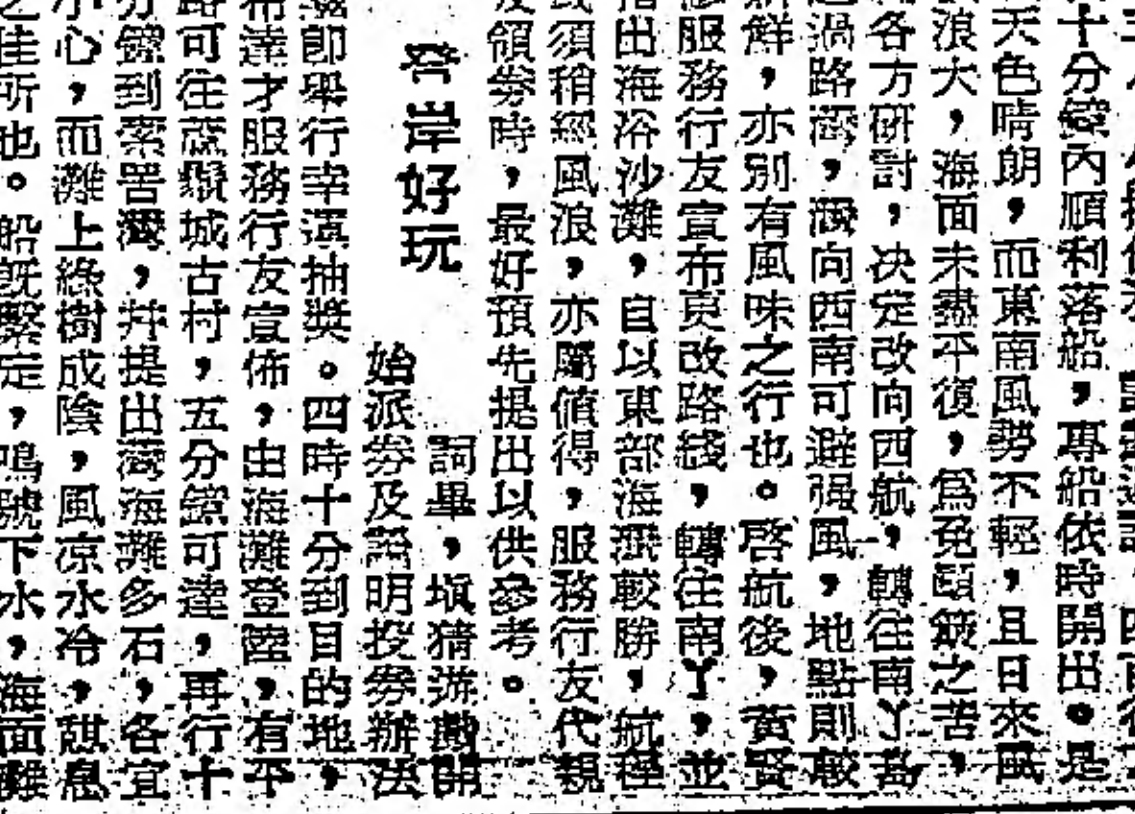 十分鐘內順利落船，專船依時開出。是
天色晴朗，而東南風勢不輕，且日來風
浪大，海面未盡平復，爲免顛簸之苦，
各方研討，決定改向西航，轉往南丫島
過路灣，灣向西南可避强風，地點則較
鮮，亦別有風味之行也。啓航後，黃賢
修服務行友宣布更改路綫，轉往南丫，並
指出海浴沙灘，自以東部海灘較勝，航程
須稍經風浪，亦屬值得，服務行友代親
及領劵時，最好預先提出以供參考。
登岸好玩
詞畢，填猜游戲開
始派劵及說明投劵辦法
即舉行幸運抽獎。四時十分到目的地，
布達才服務行友宣佈，由海灘登陸，有平
路可往蘆鬚城古村，五分鐘可達，再行十
分鐘到索罟灣，幷提出灣海灘多石，各宜
小心，而灘上綠樹成陰，風凉水冷，憩息
之佳所也。船旣繫定，鳴號下水，海面雖